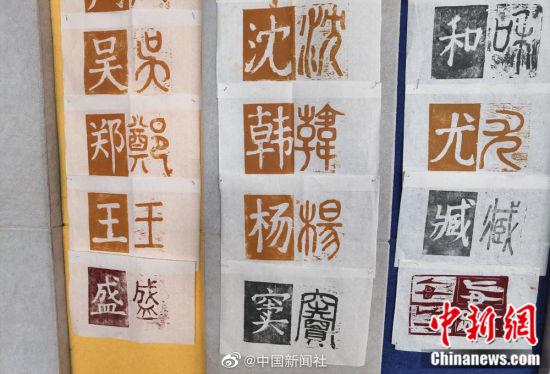 吴 吳
沈 沈
和 咊
郑 鄭
韩 韓
尤 尤
王 王
杨 楊
臧 臧
盛 盛
窦 竇
中新网
Chinanews.com
@中国新闻社